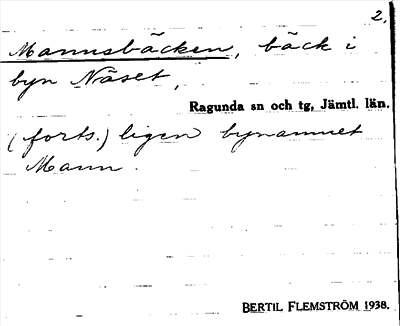 2.
Mannsbäcken, bäck i
byn Näset,
Ragunda sn och tg, Jämtl. län.
(forts.) ligen bynamnet
Mann.
BERTIL FLEMSTRÖM 1938.